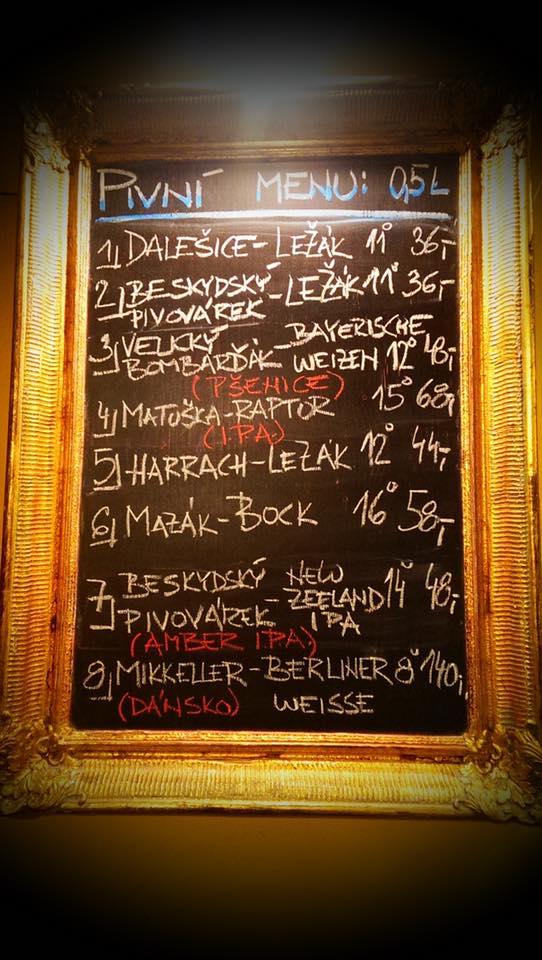 PIVNÍ MENU: 0,5L
1, DALEŠICE-LEŽÁK 11° 36,-
2, BESKYDSKÝ PIVOVÁREK -LEŽÁK 11° 36,-
3, VELICKÝ BOMBARĎÁK - BAYERISCHE WEIZEN 12° 48,-
(PŠENICE)
4, MATOŠKA-RAPTOR 15° 68,-
(IPA)
5, HARRACH-LEŽÁK 12° 44,-
6, MAZÁK-BOCK 16° 58,-
7, BESKYDSKÝ PIVOVÁREK - NEW ZEELAND IPA 14° 48,-
(AMBER IPA)
8, MIKKELLER-BERLINER 8° 140,-
(DÁNSKO) WEISSE